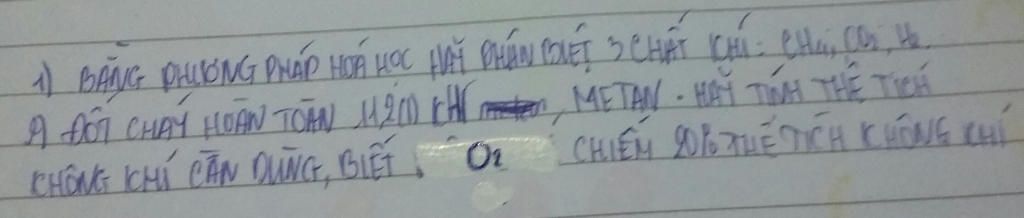 1) BẰNG PHƯƠNG PHÁP HOÁ HỌC HÃY PHÂN BIỆT 3 CHẤT KHÍ: CH4, CO2, H2.
2) ĐỐT CHÁY HOÀN TOÀN 11,2(l) KHÍ , METAN. HÃY TÍNH THỂ TÍCH
KHÔNG KHÍ CẦN DÙNG, BIẾT O2 CHIẾM 20% THỂ TÍCH KHÔNG KHÍ